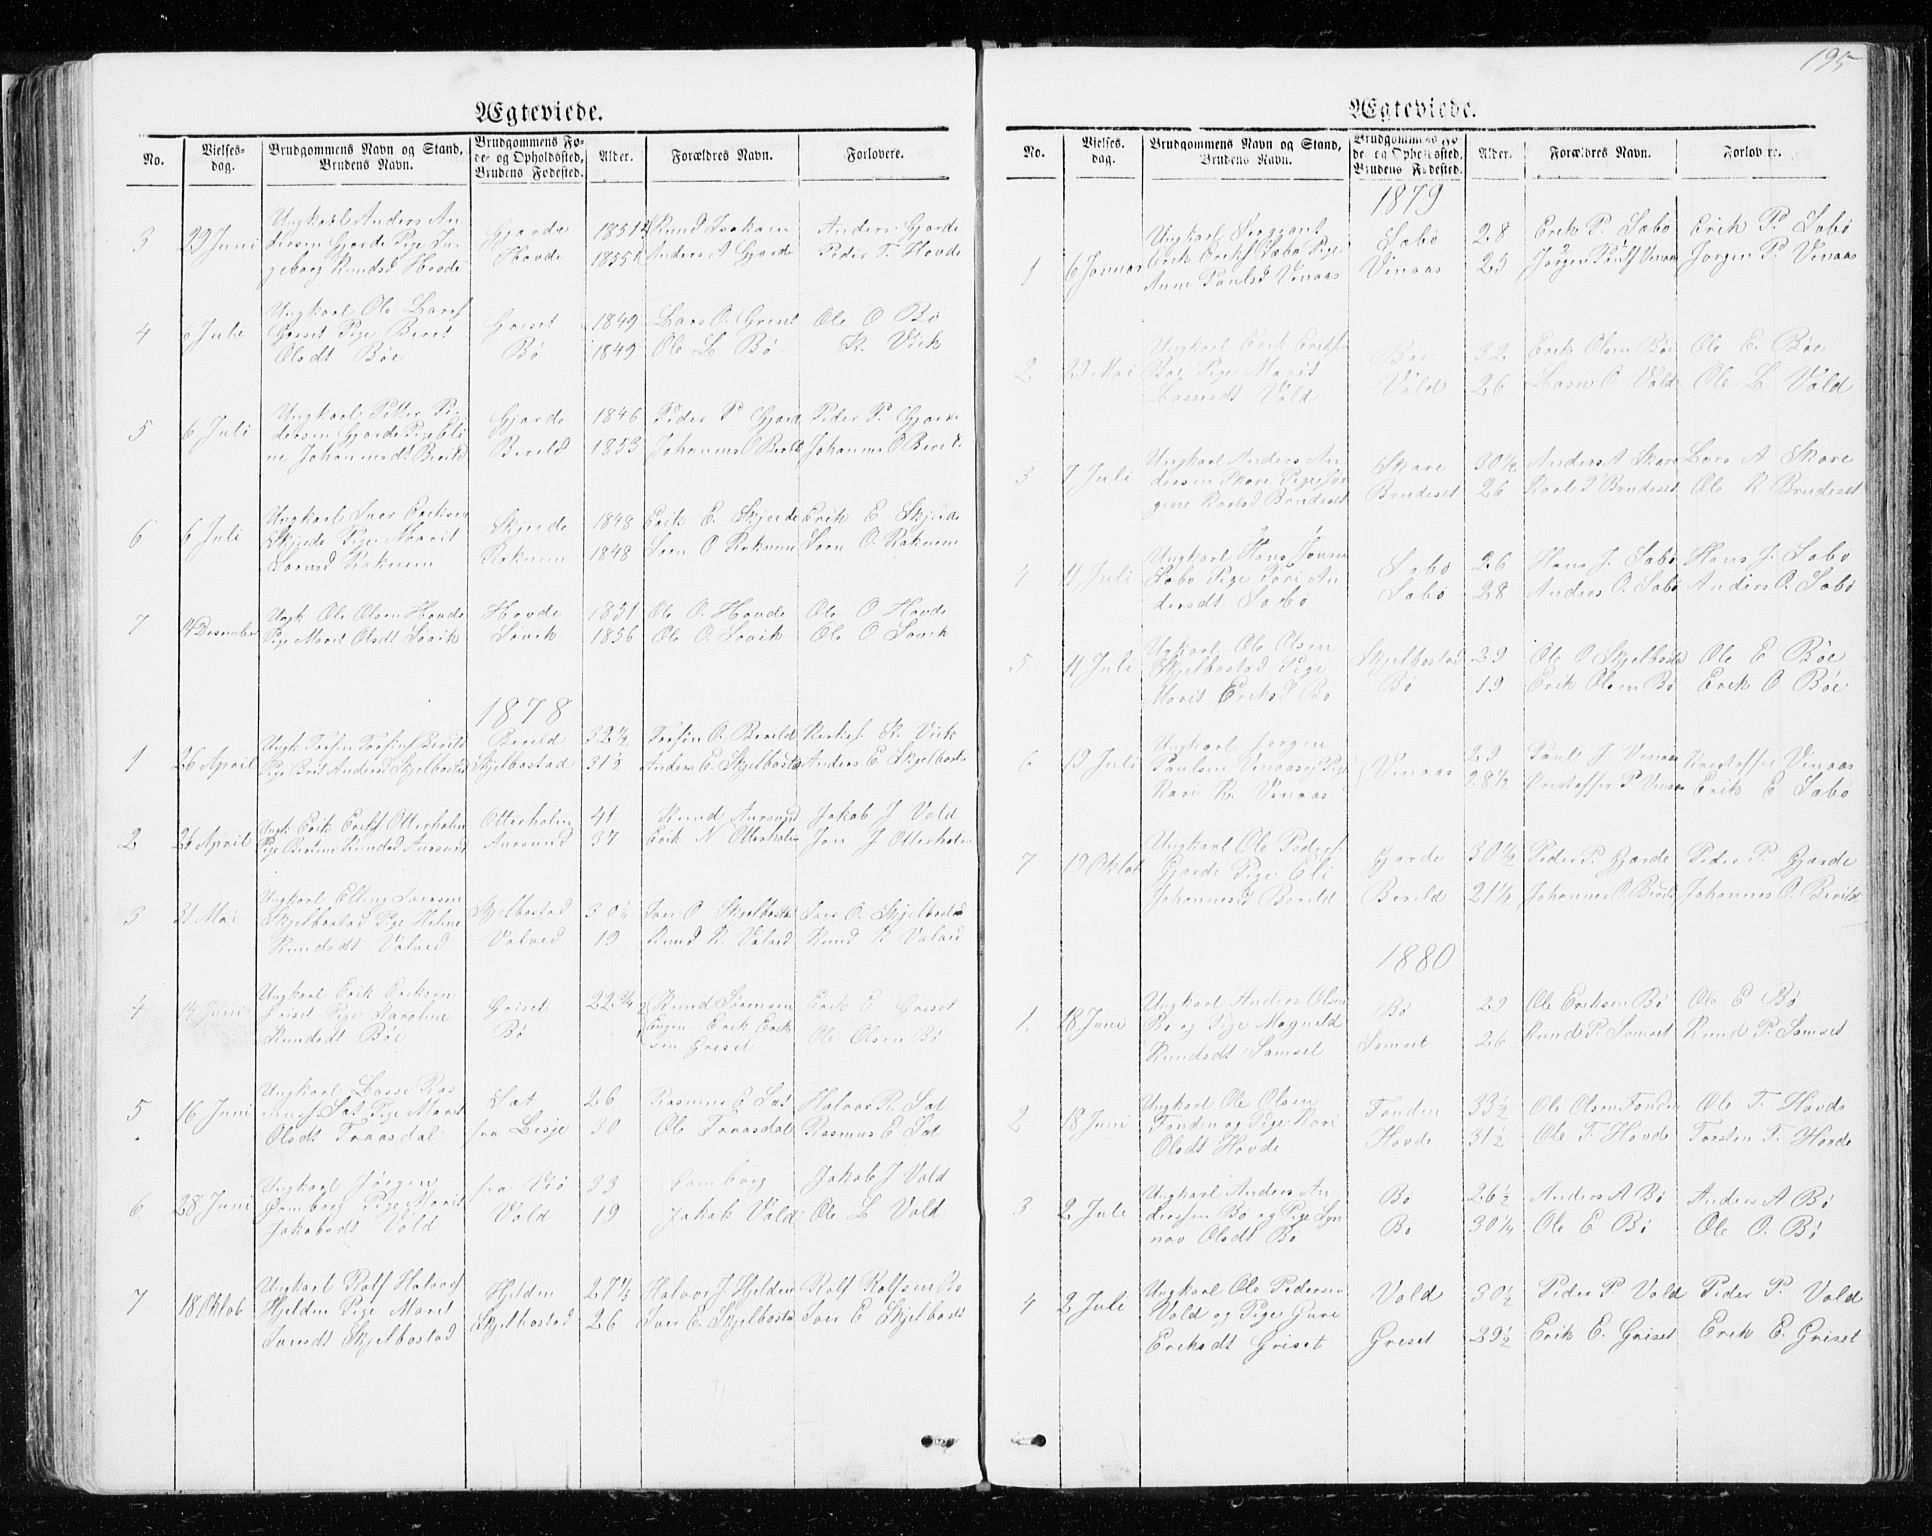 195
Ægteviede.
No.
Vielses-
dag.
Brudgommens Navn og Stand,
Brudens Navn.
Brudgommens Fø-
de- og Opholdssted,
Brudens Fødested.
Alder.
Forældres Navn.
Forlovere.
3
29 Juni
Ungkarl Anders An-
dersen Gjorde Pige In-
geborg Knudsd Hovde
Gjorde
Hovde
1851
1855
Knud Isaksen
Anders A Gjorde
Anders Gjorde
Peder T. Hovde
4
6 Juli
Ungkarl Ole Larss
Griset Pige Beret
Olsdt Böe
Griset
Bö
1849
1849
Lars O. Griset
Ole L Bö
Ole O Bö
K. Vick
5
6 Juli
Ungkarl Petter Pe-
dersen Gjorde Pige Eli-
ne Johannesdt Berild
Gjorde
Berild
1846
1853
Peder P Gjord
Johannes O Berild
Peder P. Gjorde
Johannes O Berild
6
6 Juli
Ungkarl Iver Eriksen
Skjerde Pige Marit
Sørnsd Raknem
Skjerde
Raknem
1848
1848
Erik E. Skjerde
Sörn O Raknem
Erik E Skjerde
Sörn O. Raknem
7
14 Desember
Ungk Ole Olsen Hovde
Pige Marit Olsdt Sövik
Hovde
Sövik
1851
1856
Ole O. Hovde
Ole O. Sövik
Ole O Hovde
Ole O Sövik
1878
1
26 April
Ungk. Torfin Torfins Berild
Pige Brit Andersd Skjelbostad
Berild
Skjelbostad
32½
31½
Torfin O. Berild
Anders E. Skjelbosta
Kirkes. K. Vick
Anders E. Skjelbosta
2
26 April
Ungk. Erik Eriks Otterholm
Pige Bertine Knudsd Aursund
Otterholm
Aursund
41
37
Knud Aursund
Erik N Otterholm
Jakob J Vold
Jon J Otterholm
3
31 Mai
Ungkarl Elling Iversen
Skjelbostad Pige Heline
Knudsdt Valved
Skjelbostad
Valved
30¼
19
Iver O Skjelbosta
Knud K. Valved
Iver O. Skjelbostad
Knud K Valved
4
14 Juni
Ungkarl Erik Eriksen
Griset Pige Karoline
Knudsdt Böe
Griset
Bö
22¾
Knud Sörensen
Erik Erik
sen Griset
Erik E Griset
Ole Olsen Bö
5
16 Juni
Ungkarl Lasse Ras-
muss Sat Pige Marit
Olsdt Traasdal
Sat
fra Lesje
26
30
Rasmus E Sat
Ole Traasdal
Halvor R. Sat
Rasmus E Sat
6
28 Juni
Ungkarl Jörgen
Gomborg Pige Marit
Jakobsdt Vold
fra Veö
Vold
33
19
Gomborg
Jakob Vold
Jakob J Vold
Ole L Vold
7
18 Oktob
Ungkarl Rolf Halvors
Hjelden Pige Marit
Iversdt Skjelbostad
Hjelden
Skjelbostad
27½
26
Halvor J Hjelden
Iver E. Skjelbosta
Rolf Rolfsen Bö
Iver E Skjelbosta
Ægteviede.
No.
Vielses-
dag.
Brudgommens Navn og Stand,
Brudens Navn.
Brudgommens Fø-
de- og Opholdssted,
Brudens Fødested.
Alder.
Forældres Navn.
Forlovere.
1879
1
6 Januar
Ungkarl Sergeant
Erik Eriks Sæbö Pige
Anne Paulsd Venaas
Sæbö
Venaas
28
25
Erik P. Sæbö
Jörgen Pauls Venaas
Erik P. Sæbö
Jörgen P. Venaas
2
29 Mai
Ungkarl Erik Eriks
Böe Pige Marit
Lassesdt Vold
Böe
Vold
32
26
Erik Olsen Böe
Lasse O Vold
Ole E. Böe
Ole L Vold
3
7 Juli
Ungkarl Anders An-
dersen Skare Pige Jör-
gine Karlsd Brudeset
Skare
Brudeset
30½
26
Anders A Skare
Karl P Brudeset
Lars A Skare
Ole K Brudeset
4
11 Juli
Ungkarl Hans Jonsen
Sæbö Pige Kari An-
dersdt Sæbö
Sæbö
Sæbö
26
28
Hans J. Sæbö
Anders O. Sæbö
Hans J. Sæbö
Anders O. Sæbö
5
11 Juli
Ungkarl Ole Olsen
Skjelbostad Pige
Marit Eriksd Bö
Skjelbostad
Bö
29
19
Ole O Skjelbosta
Erik Olsen Bö
Ole E Böe
Erik O Böe
6
19 Juli
Ungkarl Jörgen
Paulsen Venaas og Pige
Kari K. Venaas
Venaas
29
28½
Paul J Venaas
Kristoffer P Venaas
Kristoffer Venaas
Erik E Sæbö
7
19 Oktob
Ungkarl Ole Peders
Gjorde Pige Eli
Johannesd Berild
Gjorde
Berild
30½
21½
Peder P. Gjorde
Johannes O. Berild
Peder P. Gjorde
Johannes O. Berild
1880
1.
18 Juni
Ungkarl Anders Olsen
Bö og Pige Magnild
Knudsdt Somset
Bö
Somset
29
26
Ole Eriksen Bö
Knud P. Somset
Ole E Bö
Knud P. Somset
2
18 Juni
Ungkarl Ole Olsen
Fonden og Pige Kari
Olsdt Hovde
Fonden
Hovde
33½
31½
Ole Olsen Fonden
Ole T. Hovde
Ole T. Hovde
Torsten T. Hovde
3
2 Juli
Ungkarl Anders An-
dersen Bö og Pige Syn-
növ Olsdt Bö
Bö
Bö
26½
30¼
Anders A Bö
Ole E Bö
Anders A Bö
Ole O. Bö
4
2 Juli
Ungkarl Ole Pedersen
Vold og Pige Guri
Eriksdt Griset
Vold
Griset
30½
29½
Peder P Vold
Erik E. Griset
Peder P. Vold
Erik E. Griset